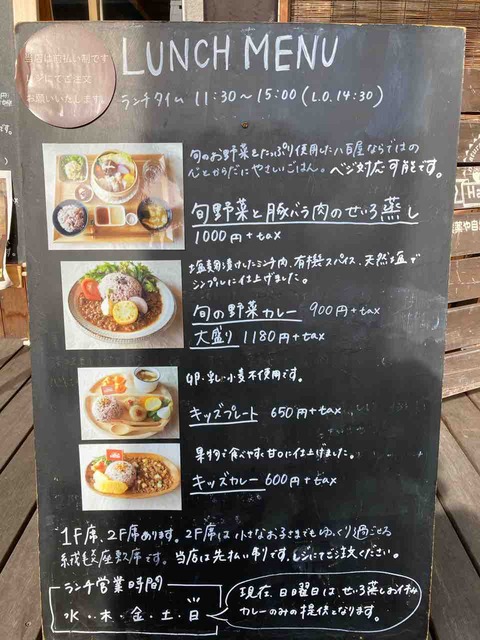 当店は前払い制です
レジにてご注文
お願いいたします。
LUNCH MENU
ランチタイム 11:30〜15:00 (L.O.14:30)
旬のお野菜をたっぷり使用した八百屋ならではの
心とからだにやさしいごはん。ベジ対応可能です。
旬野菜と豚バラ肉のせいろ蒸し
1000円+tax
塩麹漬けしたミンチ肉、有機スパイス、天然塩で
シンプルに仕上げました。
旬の野菜カレー 900円+tax
大盛り 1180円+tax
卵・乳・小麦不使用です。
キッズプレート 650円+tax
果物で食べやすく甘口に仕上げました。
キッズカレー 600円+tax
1F席、2F席あります。2F席は小さなお子さまでもゆっくり過ごせる
絨毯座敷席です。当店は先払い制です。レジにてご注文ください。
ランチ営業時間
水・木・金・土・日
現在、日曜日は、せいろ蒸し
カレーのみの提供となります。